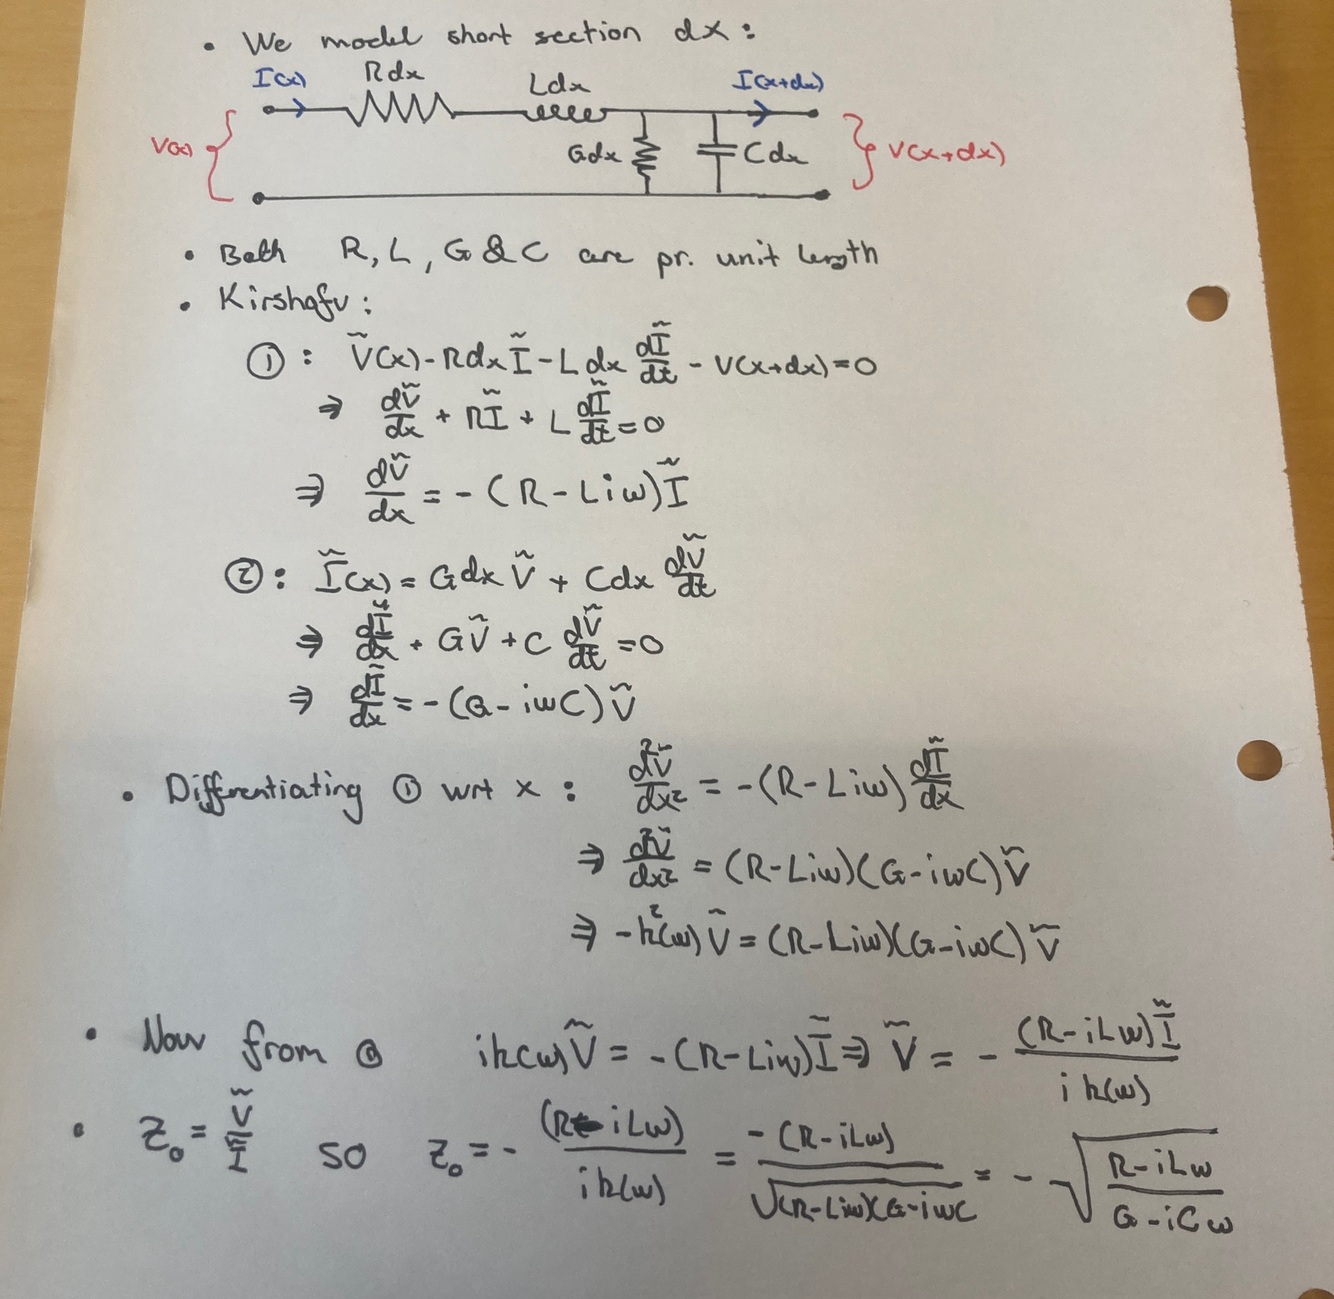 • We model short section dx:
I(x) Rdx Ldx I(x+dx)
V(x) Gdx Cdx V(x+dx)
• Both R, L, G & C are pr. unit length
• Kirshofv:
①: Ṽ(x) - Rdx Ĩ - L dx dĨ/dt - V(x+dx) = 0
⇒ dṼ/dx + RĨ + L dĨ/dt = 0
⇒ dṼ/dx = - (R - Liω) Ĩ
②: Ĩ(x) = Gdx Ṽ + Cdx dṼ/dt
⇒ dĨ/dx + GṼ + C dṼ/dt = 0
⇒ dĨ/dx = - (G - iωC) Ṽ
• Differentiating ① wrt x: d²Ṽ/dx² = - (R - Liω) dĨ/dx
⇒ d²Ṽ/dx² = (R - Liω)(G - iωC) Ṽ
⇒ - k²(ω) Ṽ = (R - Liω)(G - iωC) Ṽ
• Now from ik(ω) Ṽ = - (R - Liω) Ĩ ⇒ Ṽ = - (R - iLω) Ĩ / i k(ω)
• Z₀ = Ṽ/Ĩ so Z₀ = - (R - iLω) / i k(ω) = - (R - iLω) / √(R - Liω)(G - iωC = - √(R - iLω / G - iCω)